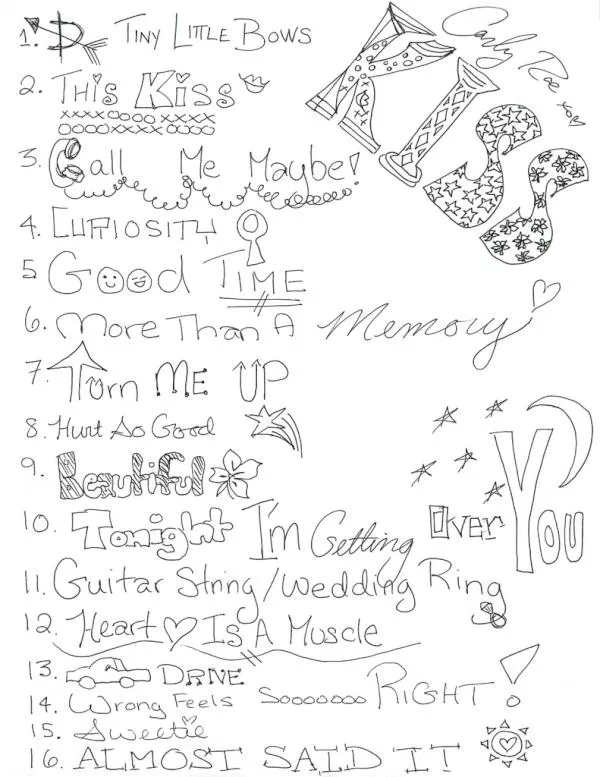 KISS
Carly Rae xoxo
1. Tiny Little Bows
2. This Kiss
xxxxooooxxxx
ooooxxxxoooo
3. Call Me Maybe!
4. CURIOSITY
5 Good TIME
6. More Than A Memory
7. Turn ME UP
8. Hurt So Good
9. Beautiful
10. Tonight I'm Getting Over You
11. Guitar String/Wedding Ring
12. Heart Is A Muscle
13. DRIVE
14. Wrong Feels Soooooooo RIGHT!
15. Sweetie
16. ALMOST SAID IT